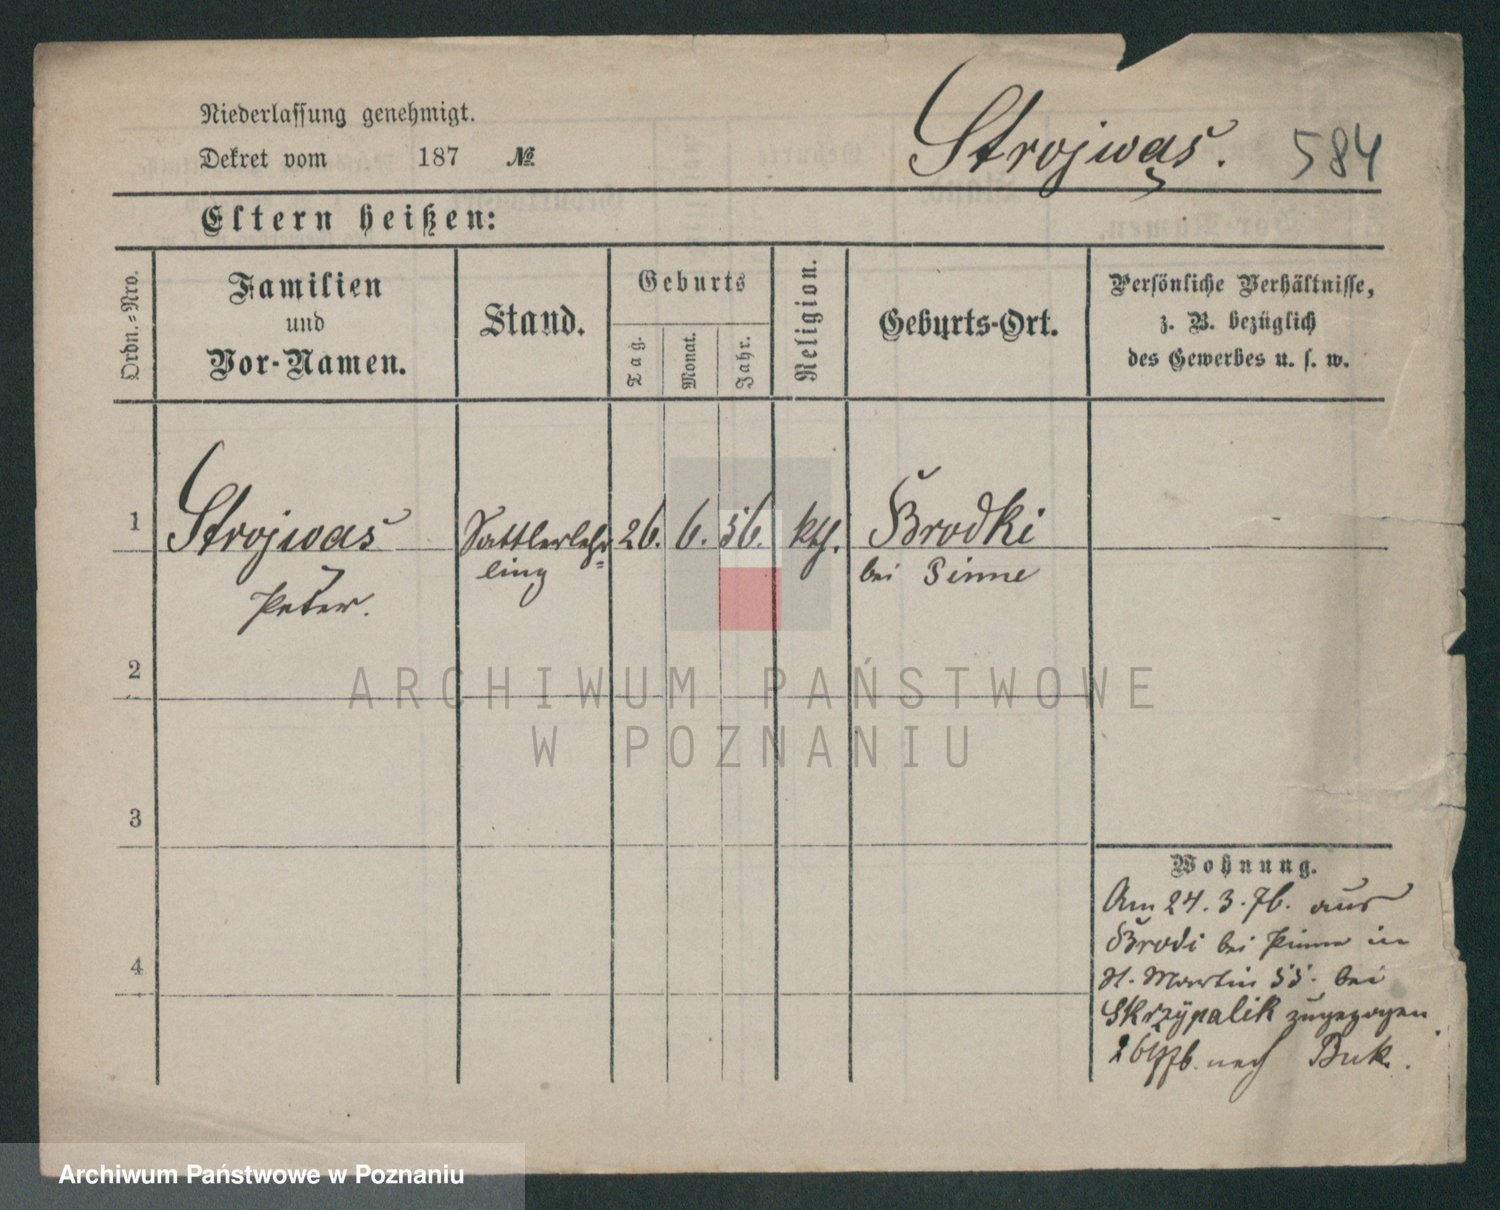 Niederlassung genehmigt.
Dekret vom 187 №
Strojwas. 584
Eltern heißen:
Ordn.-Nro.
Familien
und
Vor-Namen.
Stand.
Geburts
Tag.
Monat.
Jahr.
Religion.
Geburts-Ort.
Persönliche Verhältnisse,
z. B. bezüglich
des Gewerbes u. s. w.
1 Strojwas Sattlerlehr= 26. 6. 56. kth. Brodki
Peter. ling bei Pinne
2
3
4
Wohnung.
Am 24. 3. 76. aus
Brodi bei Pinne in
St. Martin 55. bei
Skrzypalik zugezogen
nach Buk.
ARCHIWUM PAŃSTWOWE
W POZNANIU
Archiwum Państwowe w Poznaniu